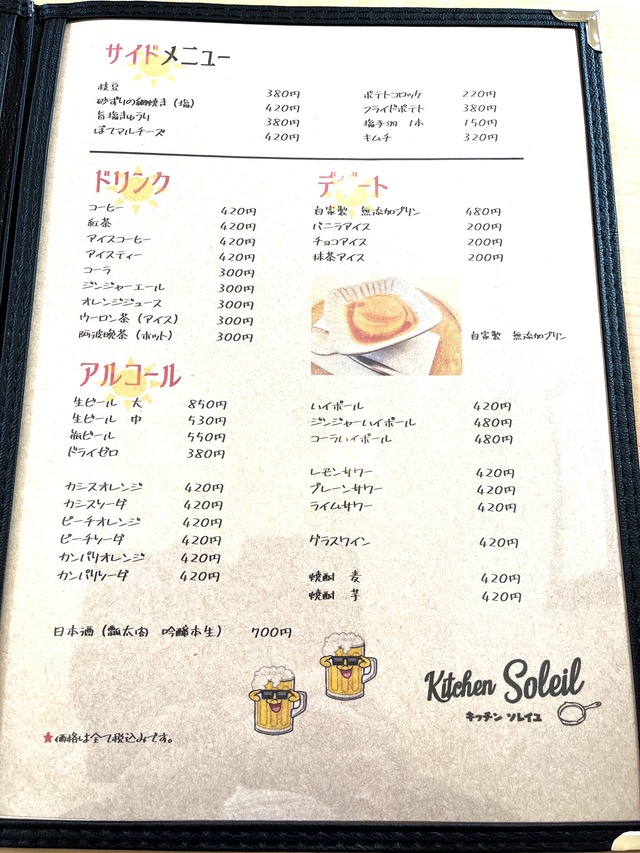 サイドメニュー
枝豆 380円
砂ずりの網焼き（塩） 420円
旨塩きゅうり 380円
ぽてマルチーズ 420円
ポテトコロッケ 220円
フライドポテト 380円
塩手羽 1本 150円
キムチ 320円
ドリンク
コーヒー 420円
紅茶 420円
アイスコーヒー 420円
アイスティー 420円
コーラ 300円
ジンジャーエール 300円
オレンジジュース 300円
ウーロン茶（アイス） 300円
阿波晩茶（ホット） 300円
デザート
自家製 無添加プリン 480円
バニラアイス 200円
チョコアイス 200円
抹茶アイス 200円
自家製 無添加プリン
アルコール
生ビール 大 850円
生ビール 中 530円
瓶ビール 550円
ドライゼロ 380円
カシスオレンジ 420円
カシスソーダ 420円
ピーチオレンジ 420円
ピーチソーダ 420円
カンパリオレンジ 420円
カンパリソーダ 420円
日本酒（瓢太閤 吟醸本生） 700円
ハイボール 420円
ジンジャーハイボール 480円
コーラハイボール 480円
レモンサワー 420円
プレーンサワー 420円
ライムサワー 420円
グラスワイン 420円
焼酎 麦 420円
焼酎 芋 420円
Kitchen Soleil
キッチン ソレイユ
★価格は全て税込みです。